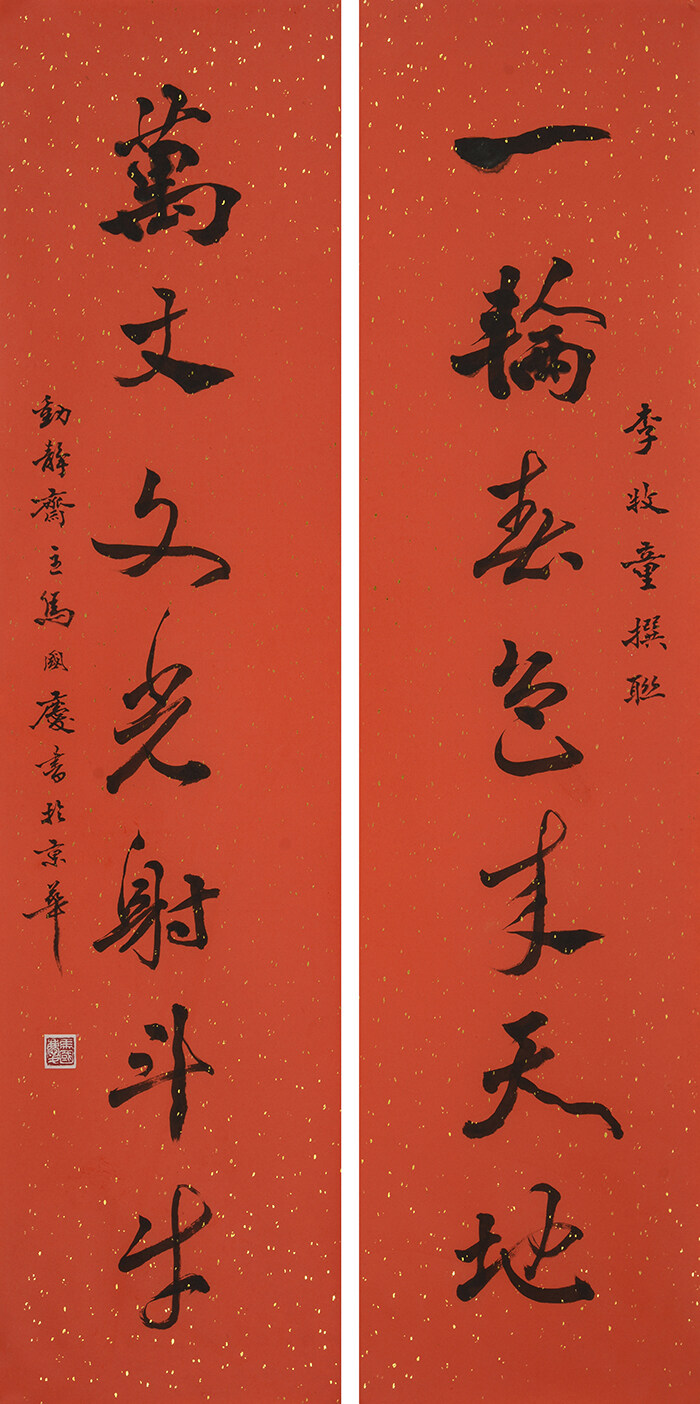 李牧童撰聯
一輪春色來天地
萬丈文光射斗牛
動靜齋主馬國慶書於京華